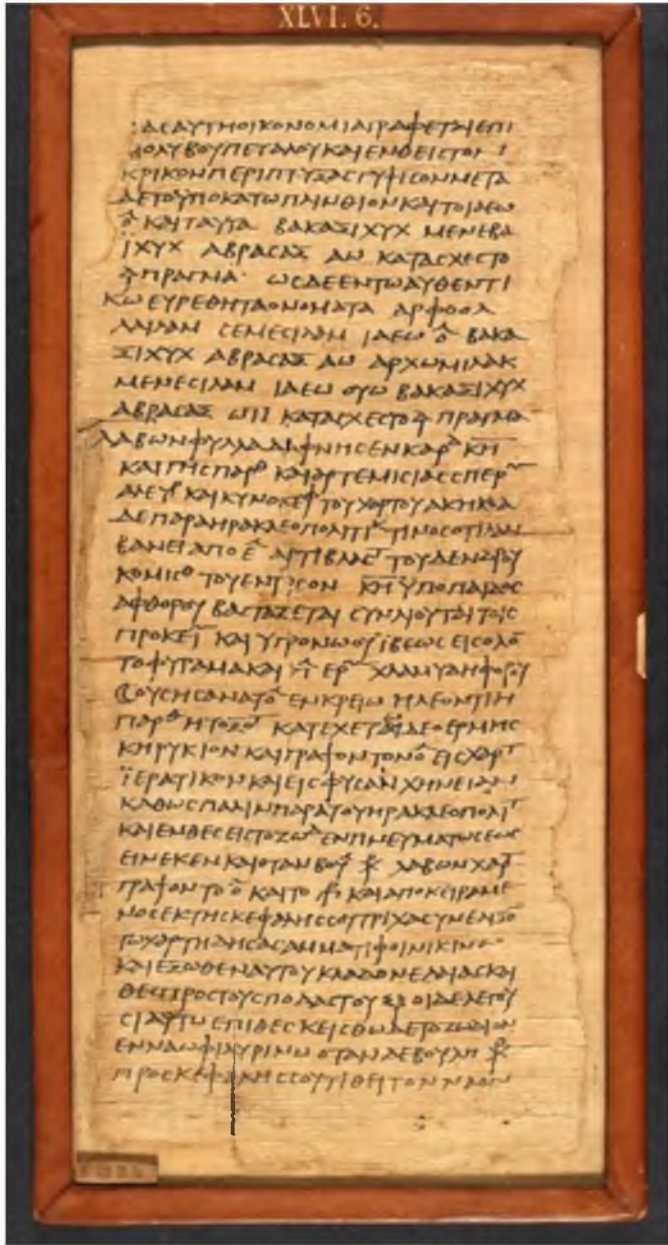 XLVI. 6.
ΔΕΑΥΤΗΟΙΚΟΝΟΜΙΑΓΡΑΦΕΤΑΙΕΠΙ
ΜΟΛΥΒΟΥΠΕΤΑΛΟΥΚΑΙΕΝΘΕΙΣΤΟΝ
ΚΡΙΚΟΝΠΕΡΙΠΤΥΞΑΣΓΥΨΙΣΟΝΜΕΤΑ
ΔΕΤΟΥΠΟΚΑΤΩΠΛΙΝΘΙΟΝΚΑΙΤΟΙΑΕΩ
ΚΑΙΤΑΥΤΑ ΒΑΚΑΞΙΧΥΧ ΜΕΝΕΒΑ
ΙΧΥΧ ΑΒΡΑΣΑΞ ΑΩ ΚΑΤΑΣΧΕΣΤΟ
ΠΡΑΓΜΑ ΩΣΔΕΕΝΤΩΑΥΘΕΝΤΙ
ΚΩΕΥΡΕΘΗΤΑΟΝΟΜΑΤΑ ΑΡΦΟΟΛ
ΛΑΙΛΑΜ ΣΕΜΕΣΙΛΑΜ ΙΑΕΩ ΒΑΚΑ
ΞΙΧΥΧ ΑΒΡΑΣΑΞ ΑΩ ΑΡΧΩΜΙΛΑΚ
ΜΕΝΕΣΙΛΑΜ ΙΑΕΩ ΟΥΩ ΒΑΚΑΞΙΧΥΧ
ΑΒΡΑΣΑΞ ΩΙΙ ΚΑΤΑΣΧΕΣΤΟ ΠΡΑΓΜΑ
ΛΑΒΩΝΦΥΛΛΑΔΑΦΝΗΣΕΝΚΑΡΔ ΚΗ
ΚΑΙΓΗΣΠΑΡΘ ΚΑΙΑΡΤΕΜΙΣΙΑΣΣΠΕΡΜ
ΑΛΕΥΡ ΚΑΙΚΥΝΟΚΕΦ ΤΟΥΧΟΡΤΟΥΑΚΗΚΟΑ
ΔΕΠΑΡΑΗΡΑΚΛΕΟΠΟΛΙΤΙΚ ΤΙΝΟΣΟΤΙΛΑΜ
ΒΑΝΕΙΑΠΟΕΛ ΑΡΤΙΒΛΑΣΤ ΤΟΥΔΕΝΔΡΟΥ
ΚΟΜΙΣΘ ΤΟΥΕΝΤ ΣΟΝ ΚΗ ΥΠΟΠΑΙΔΟΣ
ΑΦΘΟΡΟΥ ΒΑΣΤΑΖΕΤΑΙ ΣΥΝΛΙΟΥΤΑΙΤΟΙΣ
ΠΡΟΚΕΙ ΚΑΙΥΓΡΟΝΩΟΥΙΒΕΩΣΕΙΣΟΛΟ
ΤΟΦΥΡΑΜΑΚΑΙ ΕΡ ΧΛΑΜΥΔΗΦΟΡΟΥ
ΟΥΣΗΣΑΝΑΤΟ ΕΝΚΡΕΙΩ ΗΛΕΟΝΤΙΗ
ΠΑΡΘ ΗΤΟΞΟ ΚΑΤΕΧΕΤ ΔΕΟΕΡΜΗΣ
ΚΗΡΥΚΙΟΝ ΚΑΙΓΡΑΨΟΝΤΟΝ ΕΙΣΧΑΡΤ
ΙΕΡΑΤΙΚΟΝΚΑΙΕΙΣΦΥΣΑΝΧΗΝΕΙΑΝ
ΚΑΘΩΣΠΑΛΙΝΠΑΡΑΤΟΥΗΡΑΚΛΕΟΠΟΛΙΤ
ΚΑΙΕΝΘΕΣΕΙΣΤΟΖΩ ΕΝΠΝΕΥΜΑΤΩΣΕΩΣ
ΕΙΝΕΚΕΝΚΑΙΟΤΑΝΒΟΥ ΛΑΒΩΝΧΑΡ
ΓΡΑΨΟΝΤΟ ΚΑΙΤΟ ΚΑΙΑΠΟΚΕΙΡΑΜΕ
ΝΟΣΕΚΤΗΣΚΕΦΑΛΗΣΣΟΥΤΡΙΧΑΣΥΝΕΛΙΞΟ
ΤΩΧΑΡΤΗΔΗΣΑΣΑΜΜΑΤΙΦΟΙΝΙΚΙΝΟ
ΚΑΙΕΞΩΘΕΝΑΥΤΟΥΚΛΑΔΟΝΕΛΑΙΑΣΚΑΙ
ΘΕΣΠΡΟΣΤΟΥΣΠΟΔΑΣΤΟΥ ΟΙΔΕΛΕΓΟΥ
ΣΙΑΥΤΩΕΠΙΘΕΣ ΚΕΙΣΘΩΔΕΤΟΖΩΔΙΟΝ
ΕΝΝΑΩΦΙΛΥΡΙΝΩ ΟΤΑΝΔΕΒΟΥΛΗ
ΠΡΟΣΚΕΦΑΛΗΣΣΟΥΤΙΘΕΙΤΟΝΝΑΟΝ